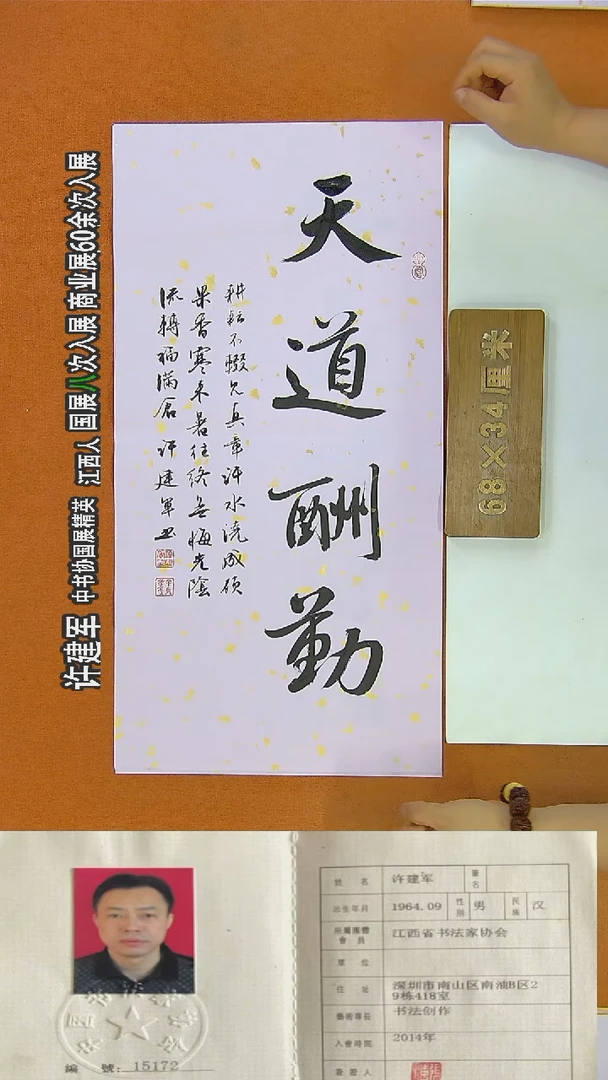 天道酬勤
耕耘不辍见真章汗水浇成硕
果香寒来暑往终无悔光阴
流转福满仓 许建军书
68×34厘米
许建军 中书协国展精英 江西人 国展八次入展 商业展60余次入展
編 號: 15172
姓 名 许建军 筆名
出生年月 1964.09 性别 男 民族 汉
所屬團體會員 江西省书法家协会
單 位
住 址 深圳市南山区南油B区29栋418室
藝術專長 书法创作
入會時間 2014年
簽證人